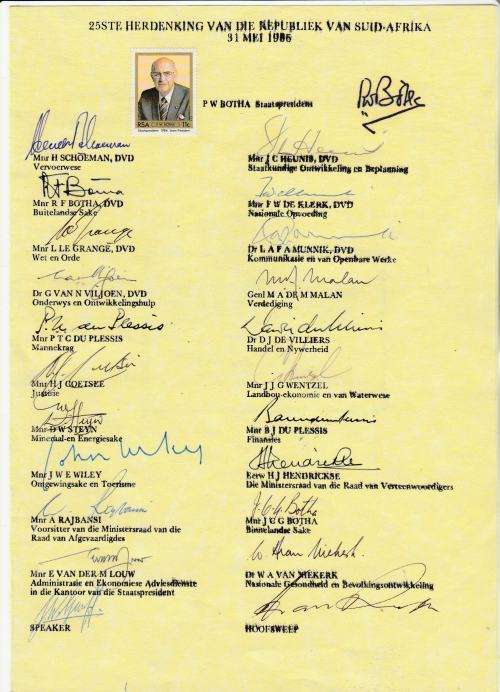 25STE HERDENKING VAN DIE REPUBLIEK VAN SUID-AFRIKA
31 MEI 1986
RSA 11c
P W BOTHA Staatspresident
PW Botha
Mnr H SCHOEMAN, DVD
Vervoerwese
Mnr J C HEUNIS, DVD
Staatkundige Ontwikkeling en Beplanning
Mnr R F BOTHA, DVD
Buitelandse Sake
Mnr F W DE KLERK, DVD
Nasionale Opvoeding
Mnr L LE GRANGE, DVD
Wet en Orde
Dr L A P A MUNNIK, DVD
Kommunikasie en van Openbare Werke
Dr G VAN N VILJOEN, DVD
Onderwys en Ontwikkelingshulp
Genl M A DE M MALAN
Verdediging
Mnr P T C DU PLESSIS
Mannekrag
Dr D J DE VILLIERS
Handel en Nywerheid
Mnr H J COETSEE
Justisie
Mnr J J G WENTZEL
Landbou-ekonomie en van Waterwese
Mnr D W STEYN
Mineraal-en Energiesake
Mnr B J DU PLESSIS
Finansies
John Wiley
Mnr J W E WILEY
Omgewingsake en Toerisme
Eerw H J HENDRICKSE
Die Ministersraad van die Raad van Verteenwoordigers
Mnr A RAJBANSI
Voorsitter van die Ministersraad van die
Raad van Afgevaardigdes
Mnr J C G BOTHA
Binnelandse Sake
Mnr E VAN DER M LOUW
Administrasie en Ekonomiese Adviesdienste
in die Kantoor van die Staatspresident
Dr W A VAN NIEKERK
Nasionale Gesondheid en Bevolkingsontwikkeling
SPEAKER
HOOFSWEEP